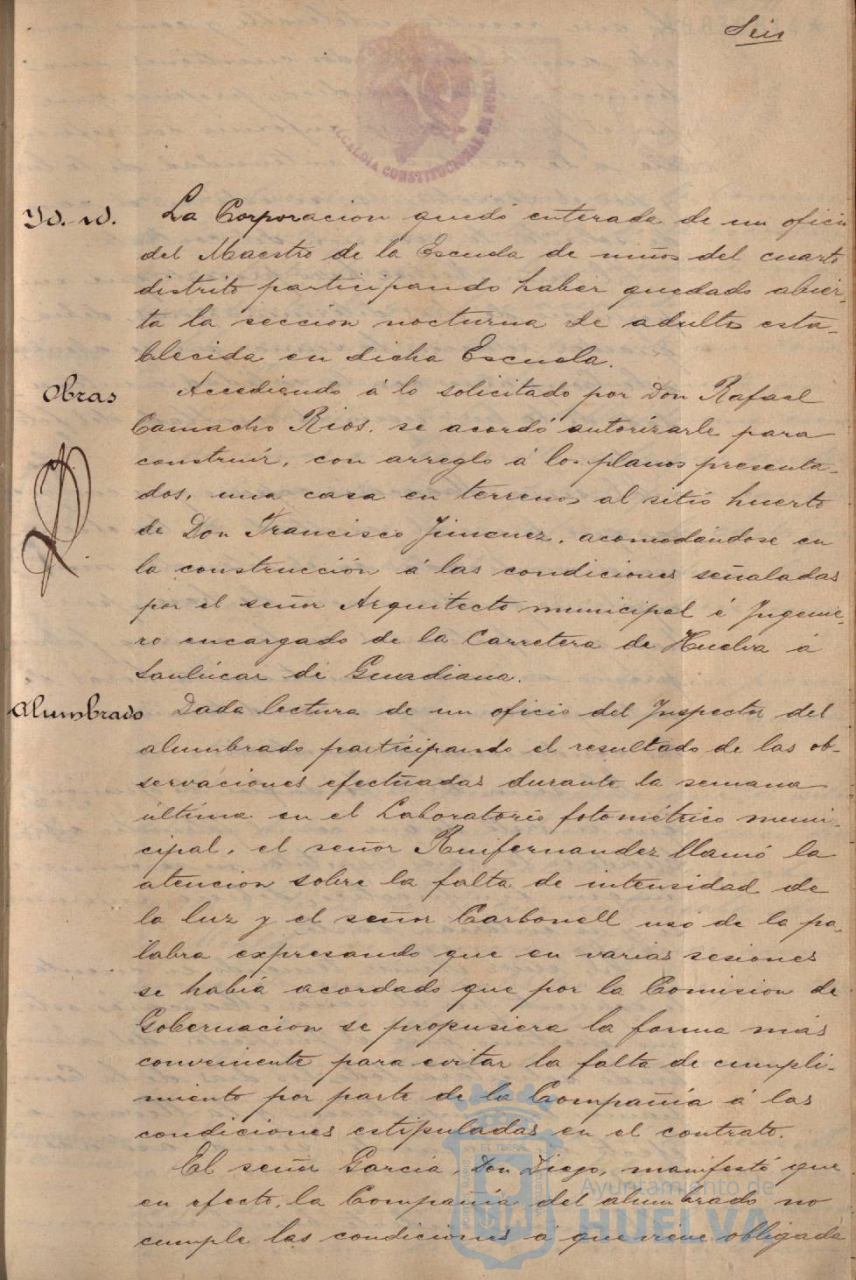 Seis
ALCALDIA CONSTITUCIONAL DE HUELVA
Yd. id. La Corporacion quedó enterada de un oficio
del Maestro de la Escuela de niños del cuarto
distrito participando haber quedado abier-
ta la seccion nocturna de adultos esta-
blecida en dicha Escuela.
Obras Accediendo á lo solicitado por Don Rafael
Camacho Rios, se acordó autorizarle para
construir, con arreglo á los planos presenta-
dos, una casa en terrenos al sitio huerto
de Don Francisco Jimenez, acomodándose en
la construcción á las condiciones señaladas
por el señor Arquitecto municipal é Ingenie-
ro encargado de la Carretera de Huelva á
Sanlúcar de Guadiana.
Alumbrado Dada lectura de un oficio del Inspector del
alumbrado participando el resultado de las ob-
servaciones efectuadas durante la semana
última en el Laboratorio fotométrico muni-
cipal, el señor Ruifernandez llamó la
atencion sobre la falta de intensidad de
la luz y el señor Carbonell usó de la pa-
labra expresando que en varias sesiones
se habia acordado que por la Comision de
Gobernacion se propusiera la forma más
conveniente para evitar la falta de cumpli-
miento por parte de la Compañía á las
condiciones estipuladas en el contrato.
El señor Garcia, Don Diego, manifestó que
en efecto, la Compañía del alumbrado no
cumple las condiciones á que viene obligada
Ayuntamiento de
HUELVA